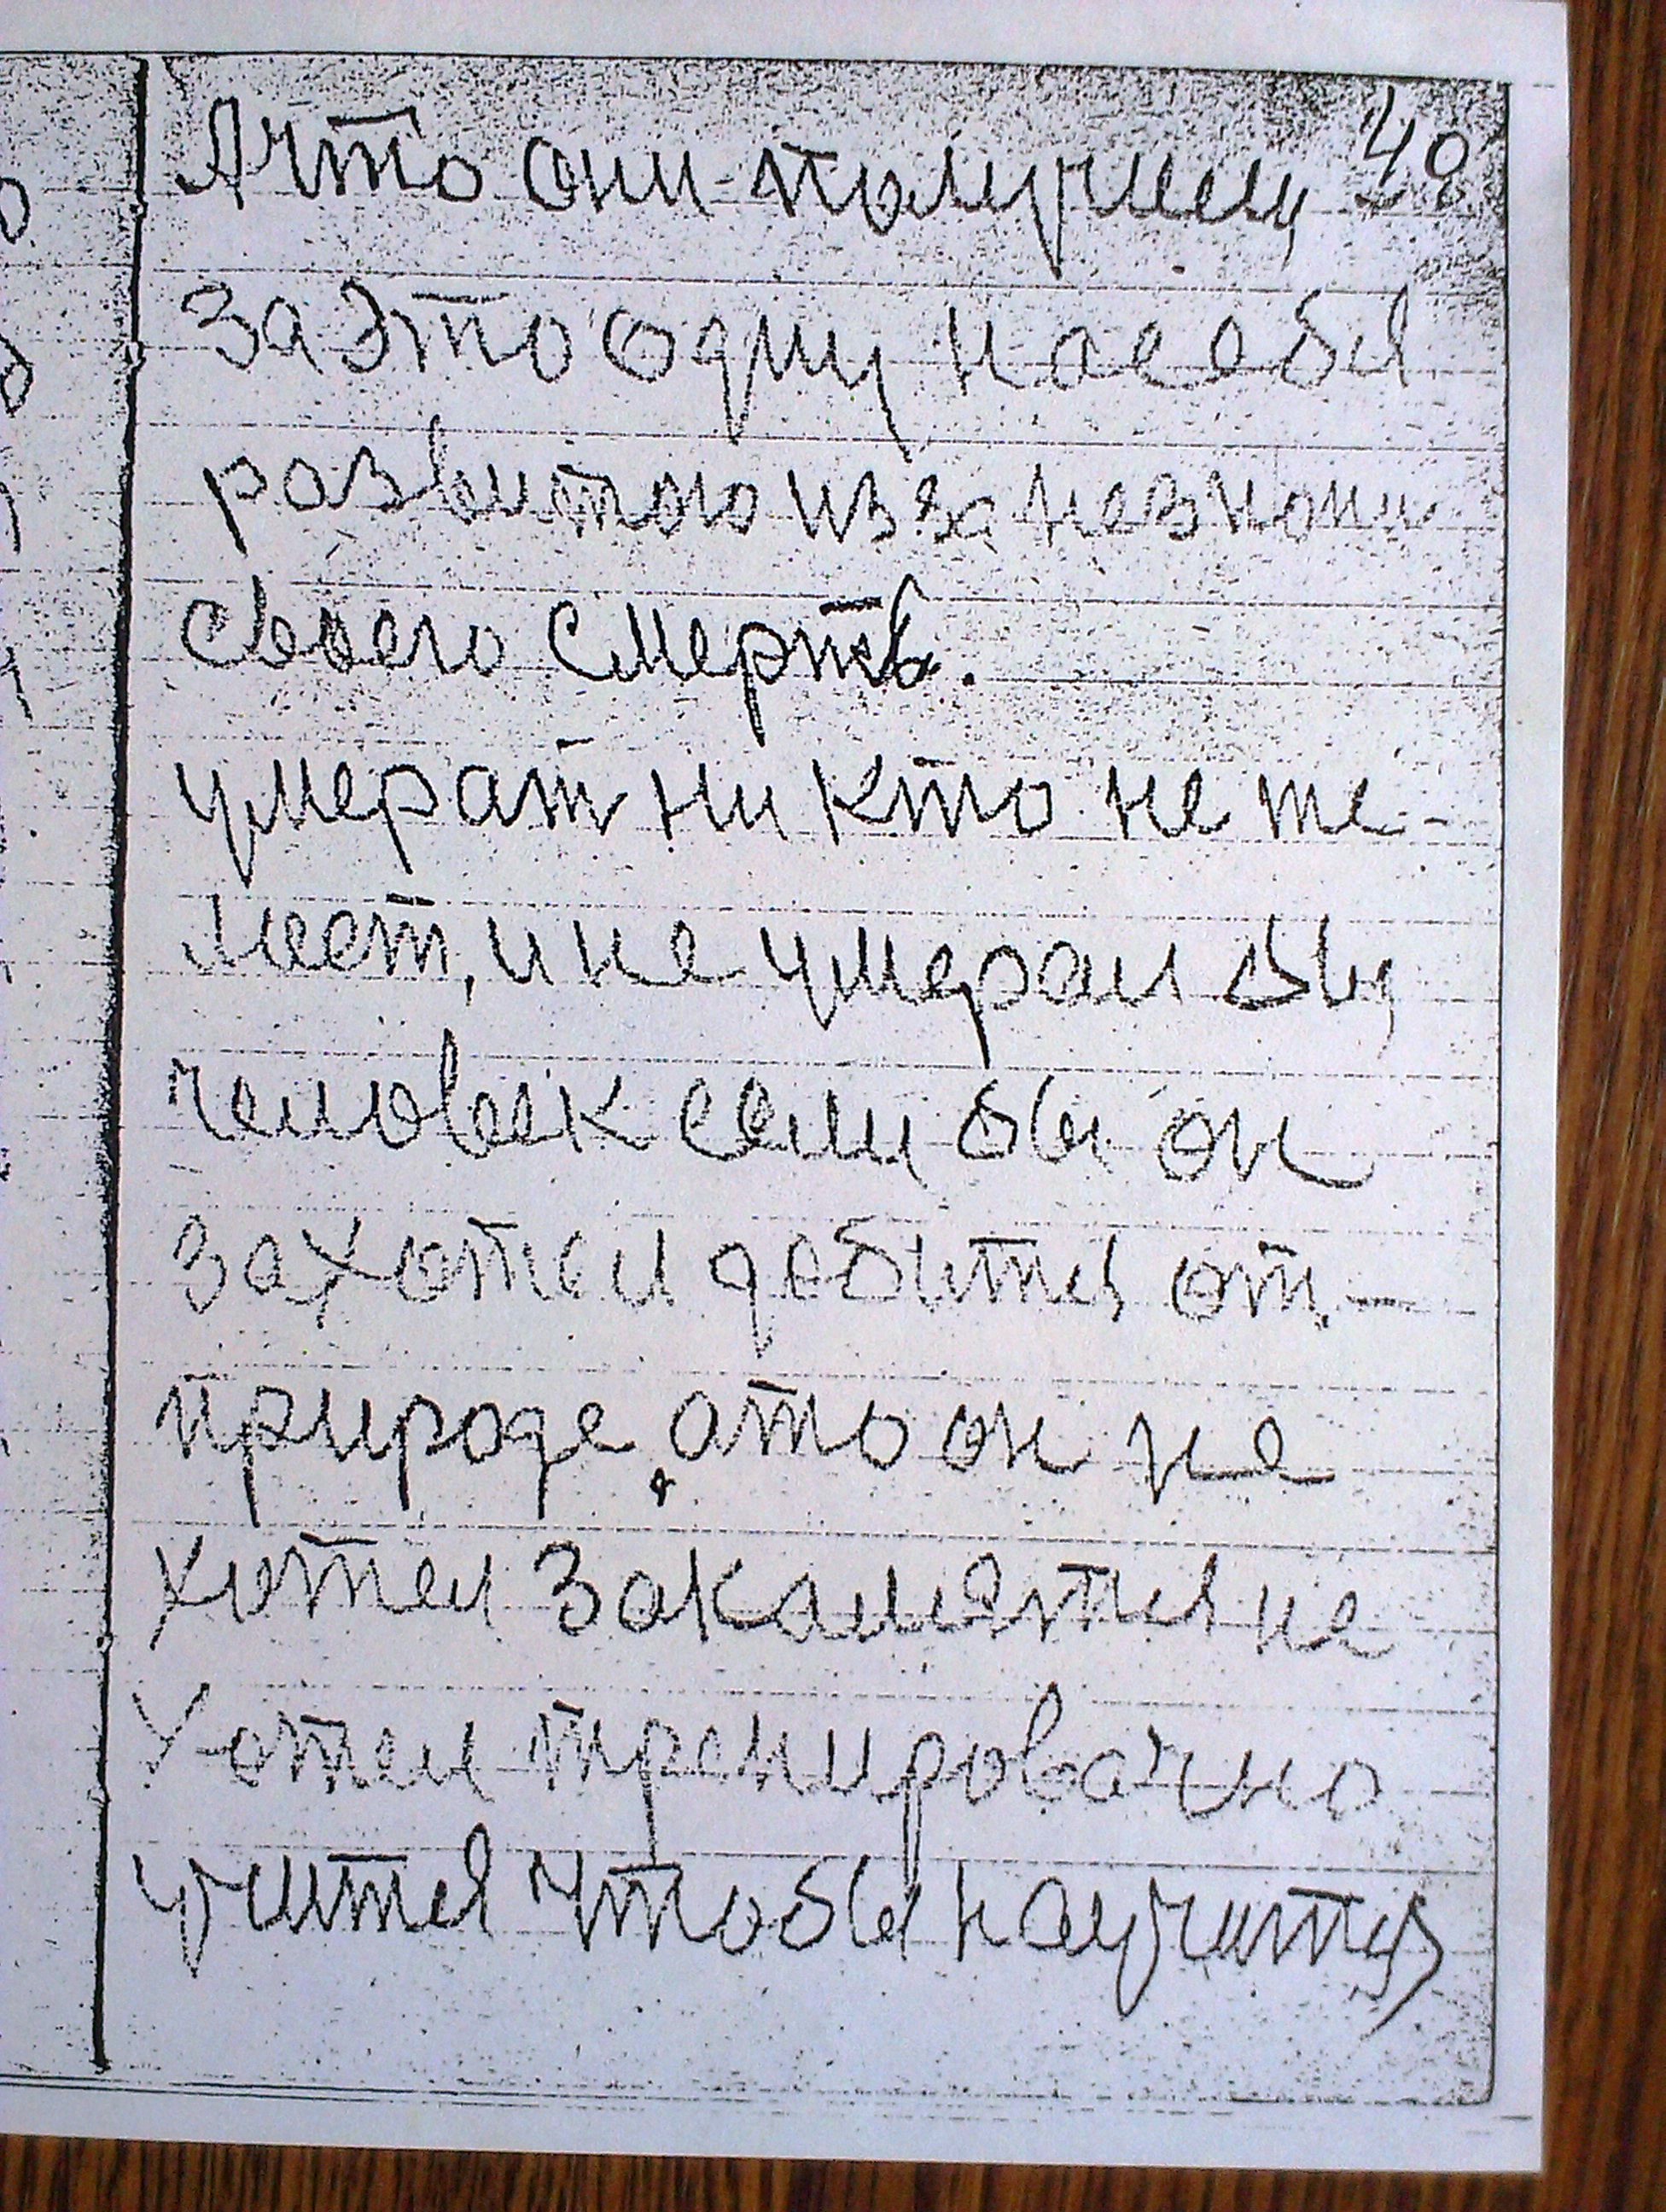 А что они получили 40
за это одну на себя
развитою из за незнани
своего смерть.
умерат ни кто не же-
лает, и не умерал бы
человек если бы он
захотел добится от
природе, а то он не
хотел закалятся не
хотел тренировачно
учится чтобы научится